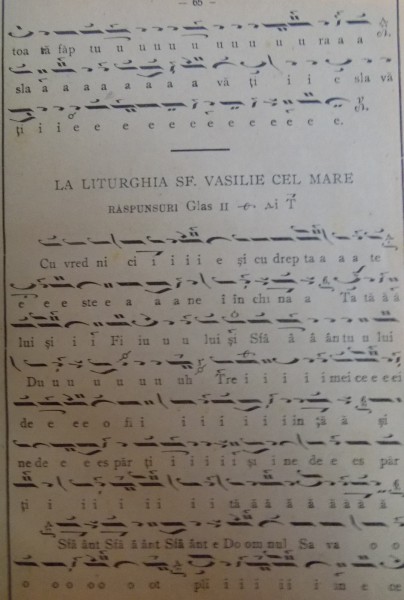 — 65 —
toa tă făp tu u u u u u u u u u ra a a
sla a a a a a a a a vă ți i i e sla vă
ți i i e e e e e e e e e e e e.
LA LITURGHIA SF. VASILIE CEL MARE
RĂSPUNSURI Glas II
Cu vred ni ci i i i i e și cu drep ta a a a te
e e e ste e a a a ne i în chi na a Ta tă ă ă
lui și i i Fi iu u u lui și Sfâ â â ân tu u lui
Du u u u u u uh Tre i i i i i mei ce e e ei
de e e e o fi i i i i i i i i în ță ă și
ne de e e e es păr ți i i i i i și i ne de e e es păr
ți i i i i i i i i tă ă ă ă ă ă ă ă
Sfâ ânt Sfâ â ânt Sfâ ânt e Do om nul Sa va o o
o o o o o ot pli i i i ii i în e ce